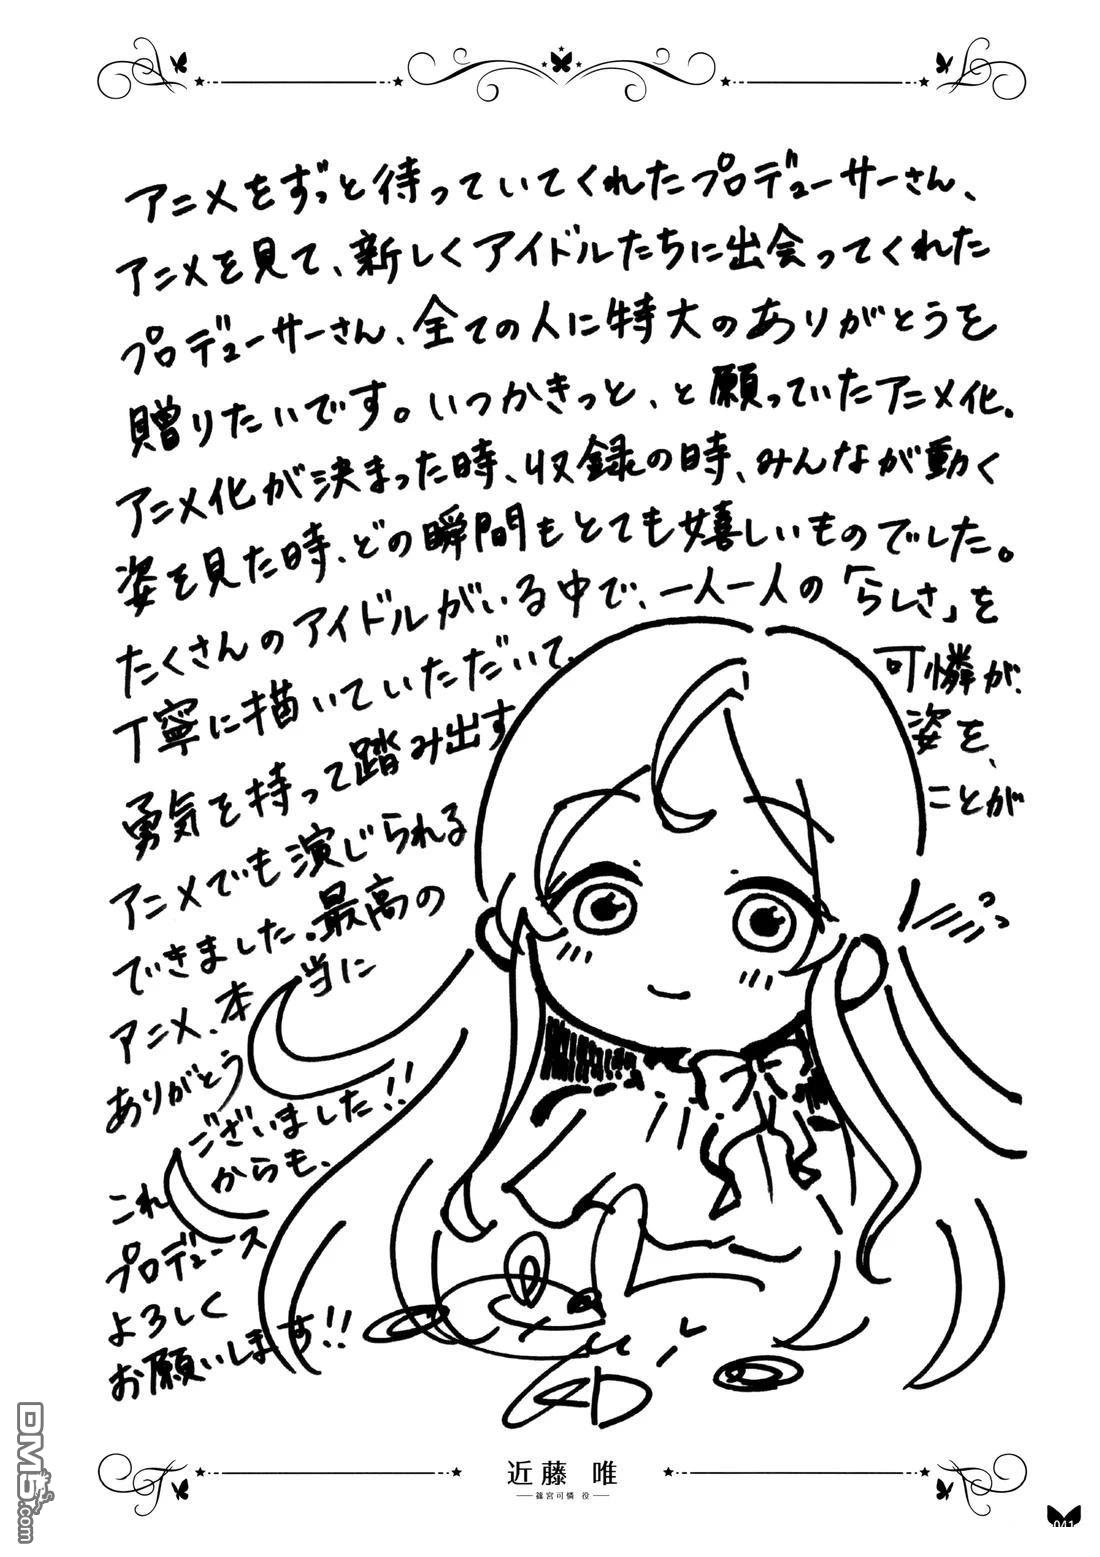 アニメをずっと待っていてくれたプロデューサーさん、
アニメを見て、新しくアイドルたちに出会ってくれた
プロデューサーさん、全ての人に特大のありがとうを
贈りたいです。いつかきっと、と願っていたアニメ化。
アニメ化が決まった時、収録の時、みんなが動く
姿を見た時、どの瞬間もとても嬉しいものでした。
たくさんのアイドルがいる中で、一人一人の「らしさ」を
丁寧に描いていただいて、可憐が、
勇気を持って踏み出す姿を、
アニメでも演じられることが
できました。最高の
アニメ、本当に
ありがとう
ございました!!
これからも、
プロデュース
よろしく
お願いします!!
近藤 唯
篠宮可憐 役
041
DM5.com